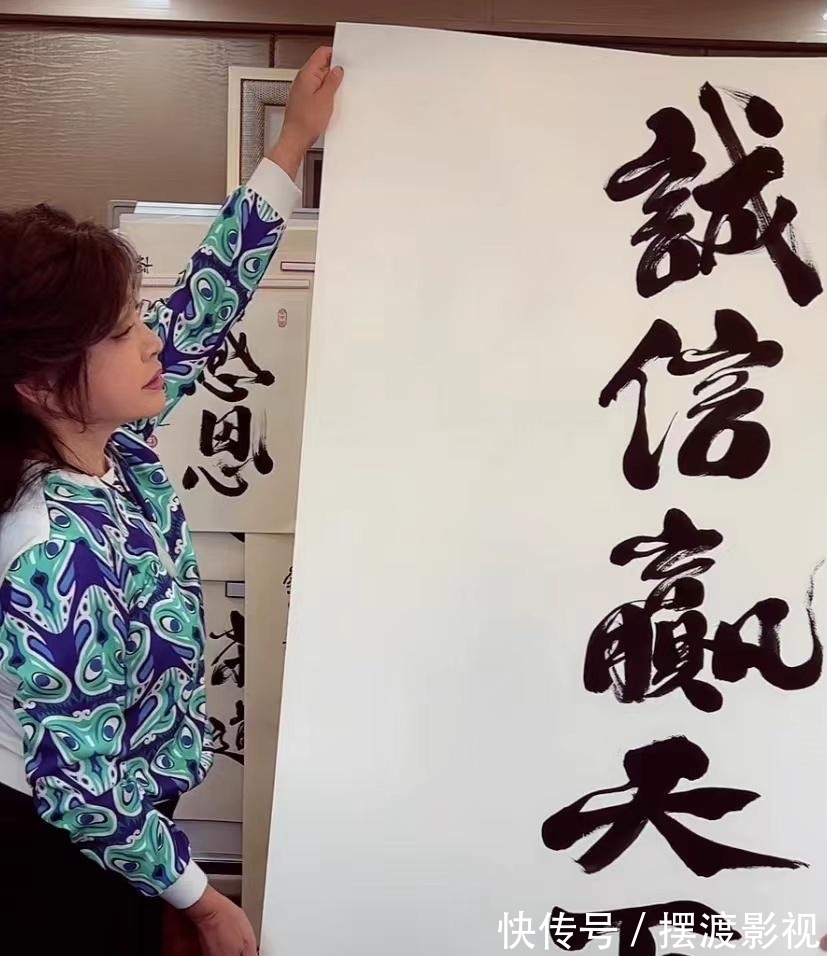 誠信赢天下
感恩
快传号／摆渡影视